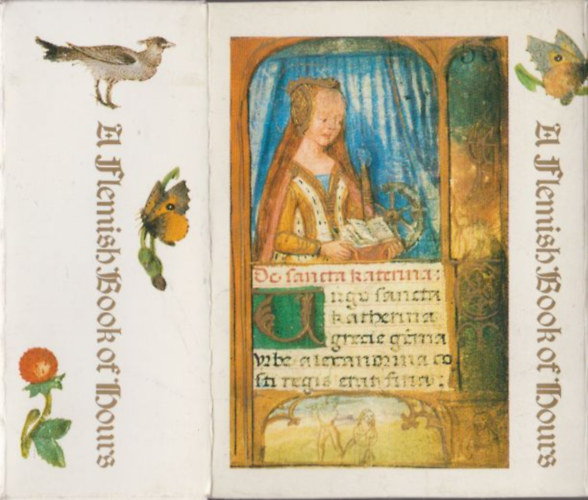 A Flemish Book of Hours
De sancta katerina:
Virgo sancta
katherina
grecie gema
vrbe alexandrina co
sti regis erat filia:
A Flemish Book of Hours